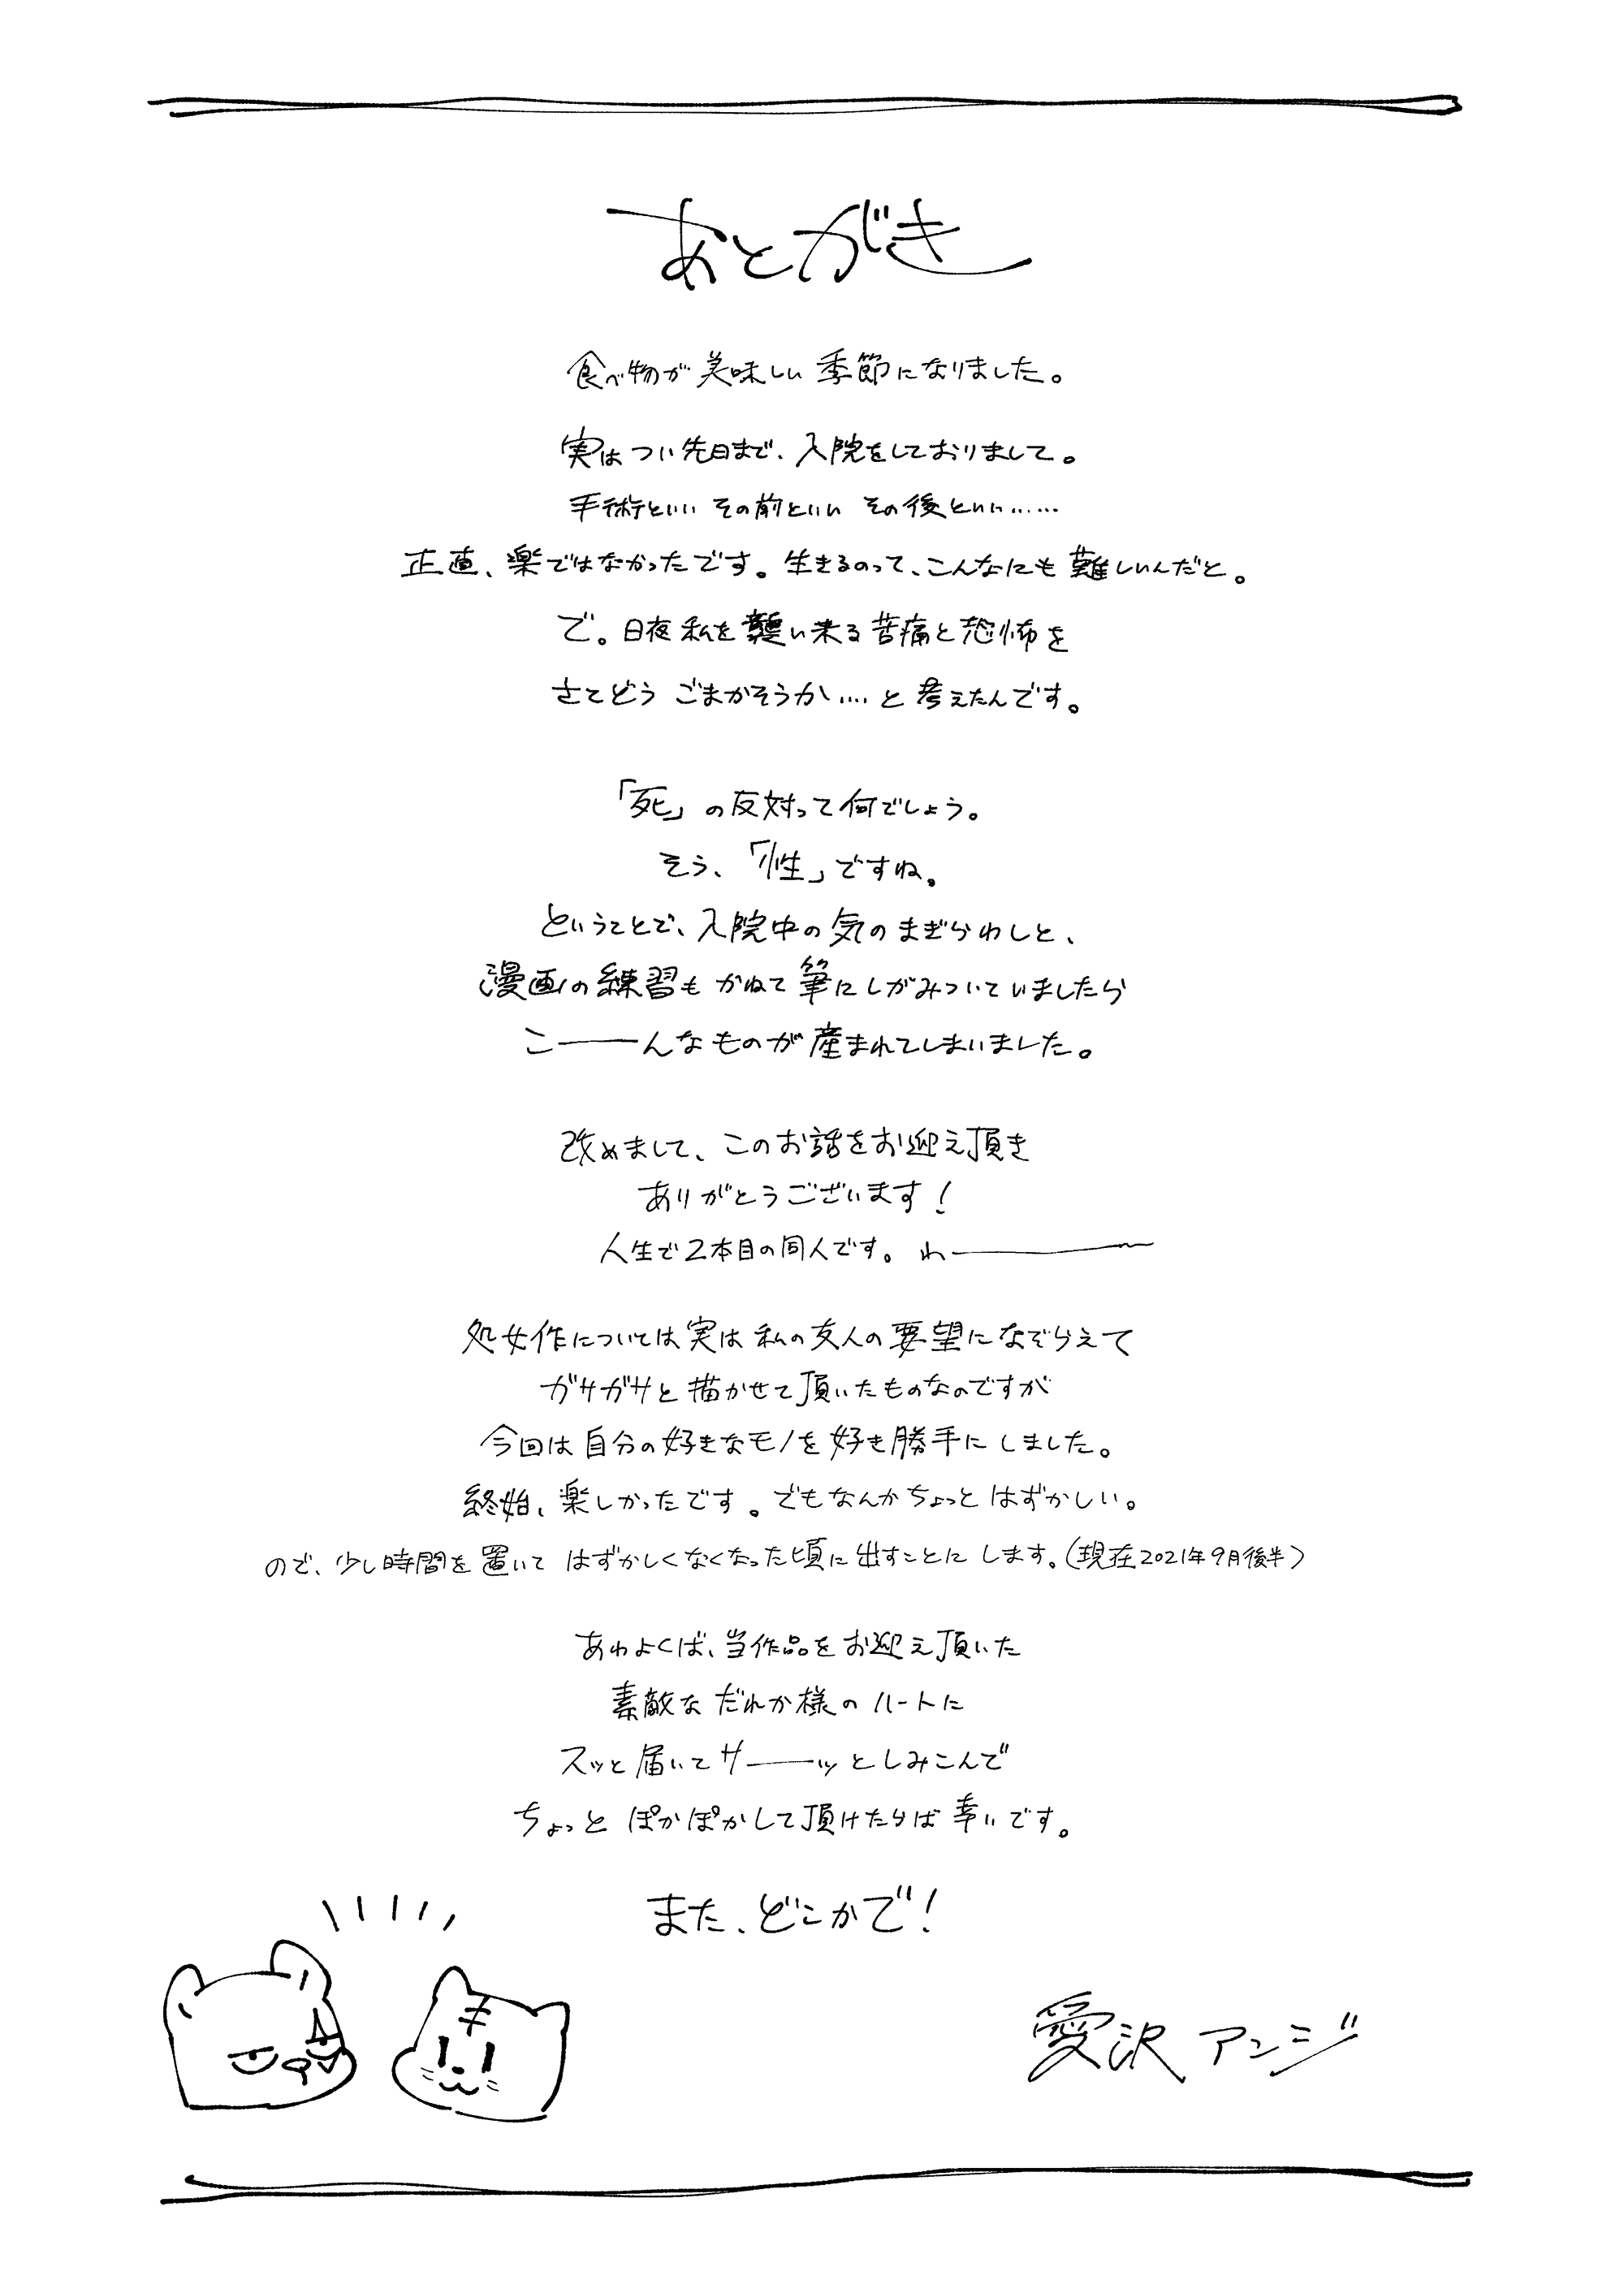 あとがき
食べ物が美味しい季節になりました。
実はつい先日まで、入院をしておりまして。
手術といい その前といい その後といい……
正直、楽ではなかったです。生きるのって、こんなにも難しいんだと。
で。日夜私を襲い来る苦痛と恐怖を
さてどう ごまかそうか…. と考えたんです。
「死」の反対って何でしょう。
そう、「性」ですね。
ということで、入院中の気のまぎらわしと、
漫画の練習もかねて筆にしがみついていましたら
こ――んなものが産まれてしまいました。
改めまして、このお話をお迎え頂き
ありがとうございます!
人生で2本目の同人です。わ――――
処女作については実は私の友人の要望になぞらえて
ガサガサと描かせて頂いたものなのですが
今回は自分の好きなモノを好き勝手にしました。
終始、楽しかったです。でもなんかちょっとはずかしい。
ので、少し時間を置いて はずかしくなくなった頃に出すことにします。(現在2021年9月後半)
あわよくば、当作品をお迎え頂いた
素敵なだれか様のハートに
スッと届いてサ――ッとしみこんで
ちょっとぽかぽかして頂けたらば幸いです。
また、どこかで!
愛沢アンジ